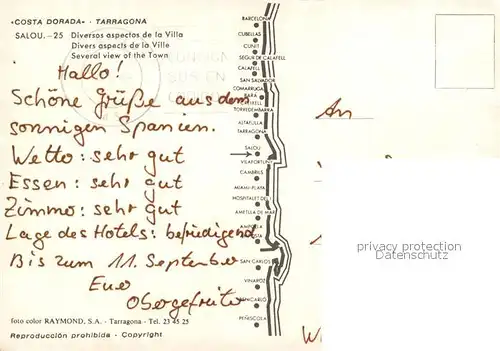 «COSTA DORADA» · TARRAGONA
SALOU. - 25 Diversos aspectos de la Villa
Divers aspects de la Ville
Several view of the Town
Hallo!
Schöne Grüße aus dem
sonnigen Spanien.
Wetter: sehr gut
Essen: sehr gut
Zimmer: sehr gut
Lage des Hotels: befriedigend
Bis zum 11. September
Euer
Obergefreiter
foto color RAYMOND, S.A. - Tarragona - Tel. 23 45 25
Reproducción prohibida - Copyright
BARCELONA
CUBELLAS
CUNIT
SEGUR DE CALAFELL
CALAFELL
SAN SALVADOR
COMARRUGA
BARÁ
TORREDEMBARRA
ALTAFULLA
TARRAGONA
SALOU
VILAFORTUNY
CAMBRILS
MIAMI-PLAYA
HOSPITALET DEL I.
AMETLLA DE MAR
SAN CARLOS
VINAROZ
BENICARLO
PEÑISCOLA
An
privacy protection
AnsichtskartenCenter.de